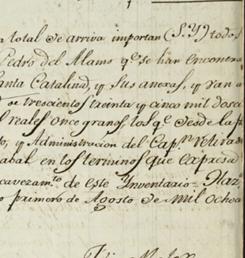 a total de arriva importan (S.Y) todo
Pedro del Alamo q.e se han encontra
Santa Catalina, y sus anexas, y van a
os trescientos treinta y cinco mil dosci
reales once granos, los q.e desde la f
o, y Administracion del Cap.n retira
cabal en los terminos que expresa
cavezam.to de este Inventario. Haz
o primero de Agosto de mil ochoc